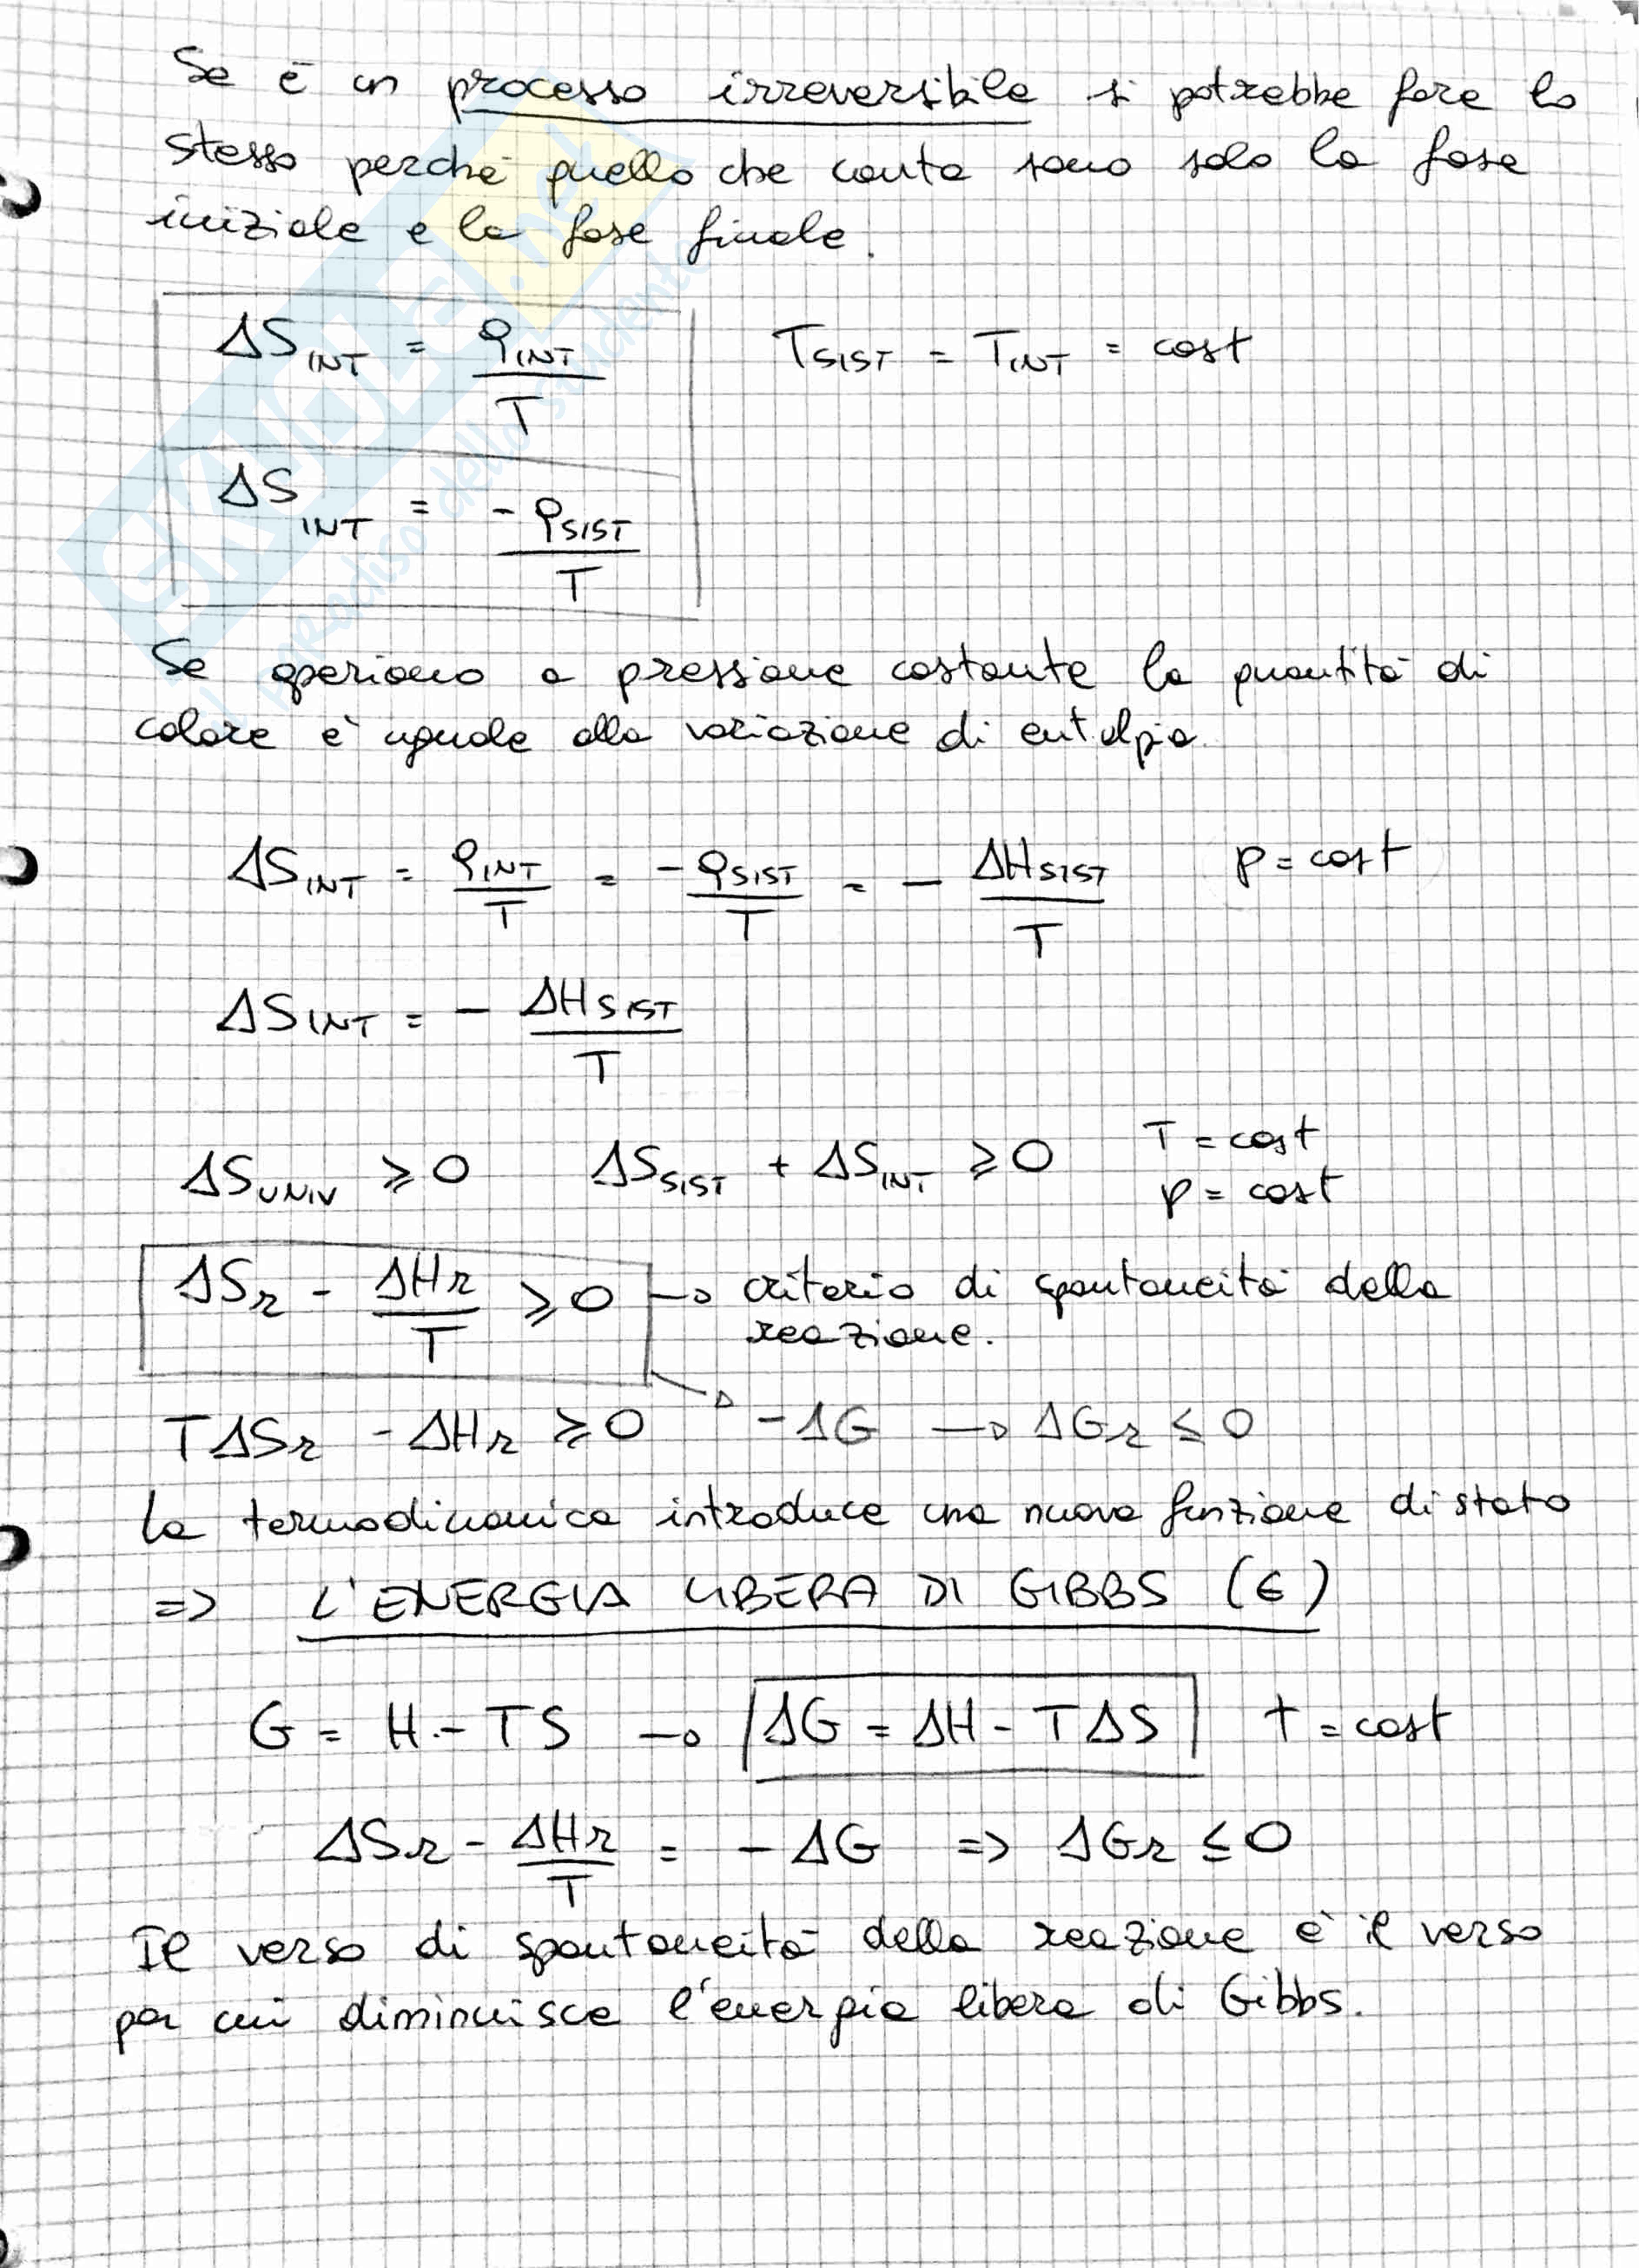 Se è un processo irreversibile si potrebbe fare lo
stesso perché quello che conta sono solo la fase
iniziale e la fase finale.
ΔS_INT = q_INT / T    T_SIST = T_INT = cost
ΔS_INT = - q_SIST / T
Se operiamo a pressione costante la quantità di
calore è uguale alla variazione di entalpia.
ΔS_INT = q_INT / T = - q_SIST / T = - ΔH_SIST / T    p = cost
ΔS_INT = - ΔH_SIST / T
ΔS_UNIV ≥ 0    ΔS_SIST + ΔS_INT ≥ 0    T = cost
p = cost
ΔS_r - ΔH_r / T ≥ 0 → criterio di spontaneità della
reazione.
TΔS_r - ΔH_r ≥ 0    → -ΔG → ΔG_r ≤ 0
La termodinamica introduce una nuova funzione di stato
=> L'ENERGIA LIBERA DI GIBBS (G)
G = H - TS → ΔG = ΔH - TΔS    T = cost
ΔS_r - ΔH_r / T = - ΔG => ΔG_r ≤ 0
Il verso di spontaneità della reazione è il verso
per cui diminuisce l'energia libera di Gibbs.
SKUOLA.net
il paradiso dello studente